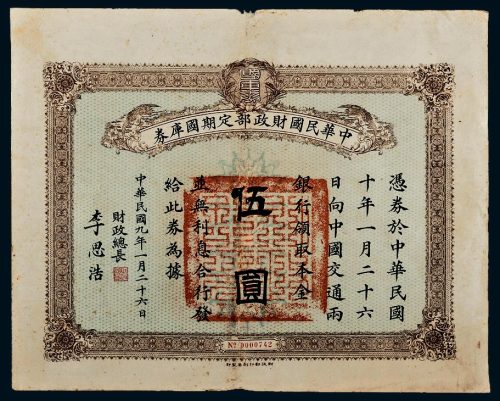 中華民國財政部定期國庫券
憑券於中華民國
十年一月二十六
日向中國交通兩
銀行領取本金
伍圓
並無利息合行發
給此券為據
中華民國九年一月二十六日
財政總長
李思浩
No 0000742